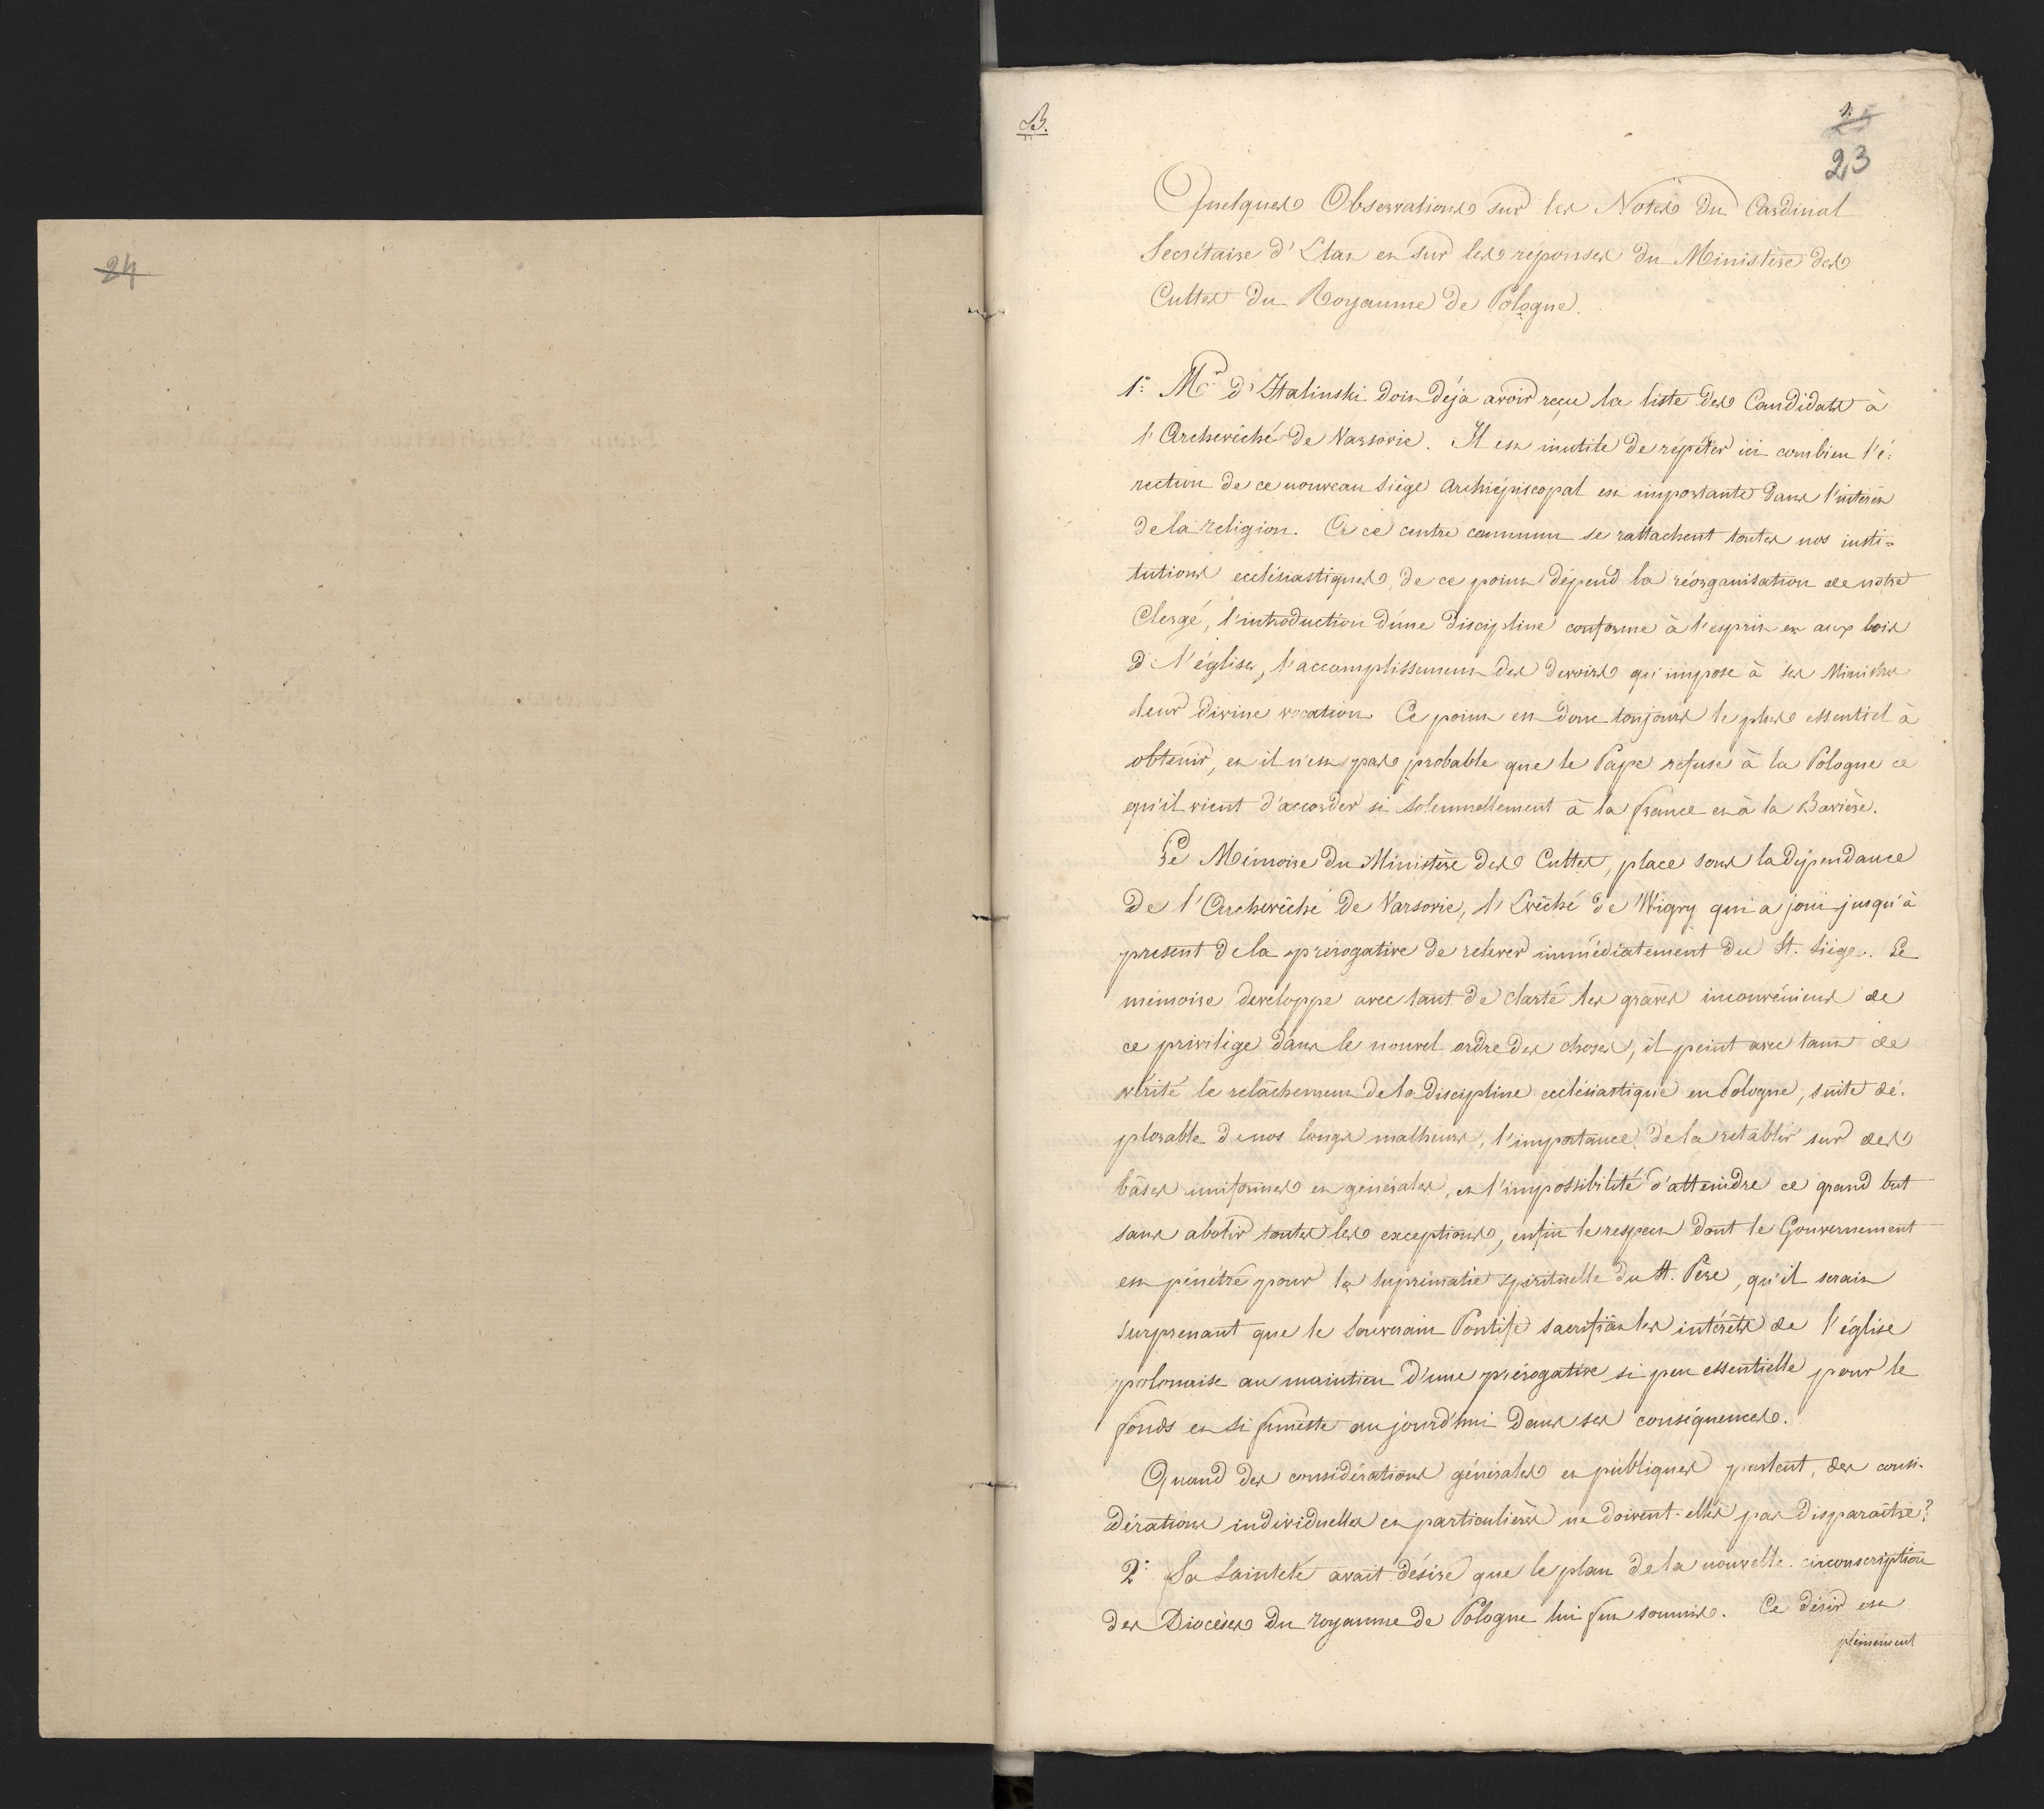 24
B.
1.
25
23
Quelques Observations sur les Notes du Cardinal
Secrétaire d'Etat et sur les réponses du Ministère des
Cultes du Royaume de Pologne.
1.° Mr d'Italinski doit déja avoir reçu la liste des Candidats à
l'Archevêché de Varsovie. Il est inutile de répéter ici combien l'é-
rection de ce nouveau siège Archiépiscopal est importante dans l'intérêt
de la religion. A ce centre commun se rattachent toutes nos insti-
tutions ecclésiastiques, de ce point dépend la réorganisation de notre
Clergé, l'introduction d'une discipline conforme à l'esprit et aux loix
de l'église, l'accomplissement des devoirs qu'impose à ses Ministres
leur divine vocation. Ce point est donc toujours le plus essentiel à
obtenir, et il n'est pas probable que le Pape refuse à la Pologne ce
qu'il vient d'accorder si solemnellement à la france et à la Bavière.
Le Mémoire du Ministère des Cultes, place sous la dépendance
de l'Archevêché de Varsovie, l'Evêché de Wigry qui a joui jusqu'à
present de la prérogative de relever immédiatement du St. Siège. Le
mémoire developpe avec tant de clarté les graves inconvéniens de
ce privilège dans le nouvel ordre des choses, il peint avec tant de
vérité le relâchement de la discipline ecclésiastique en Pologne, suite dé-
plorable de nos longs malheurs, l'importance de la rétablir sur des
bâses uniformes et générales, et l'impossibilité d'atteindre ce grand but
sans abolir toutes les exceptions, enfin le respect dont le Gouvernement
est pénétré pour la suprématie spirituelle du St. Père, qu'il serait
surprenant que le Souverain Pontife sacrifiât les intérêts de l'église
polonaise au maintien d'une prérogative si peu essentielle pour le
fonds et si funeste aujourd'hui dans ses conséquences.
Quand des considérations générales et publiques parlent, des consi-
dérations individuelles et particulières ne doivent-elles pas disparaître?
2.° Sa Sainteté avait désiré que le plan de la nouvelle circonscription
des Diocèses du royaume de Pologne lui fut soumis. Ce désir est
pleinement